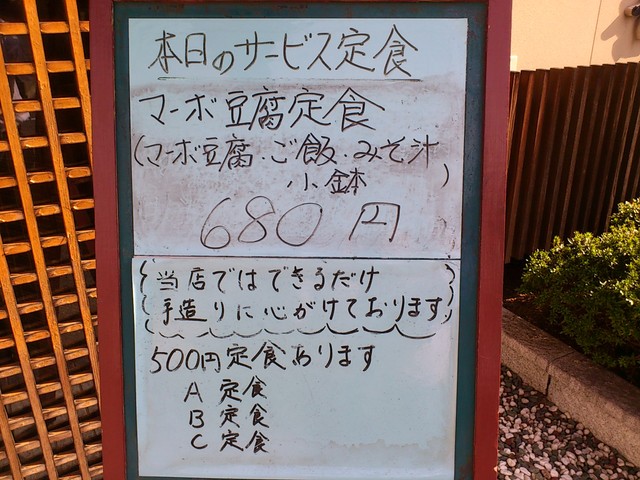 本日のサービス定食
マーボ豆腐定食
(マーボ豆腐・ご飯・みそ汁
小鉢)
680円
当店ではできるだけ
手造りに心がけております
500円定食あります
A 定食
B 定食
C 定食